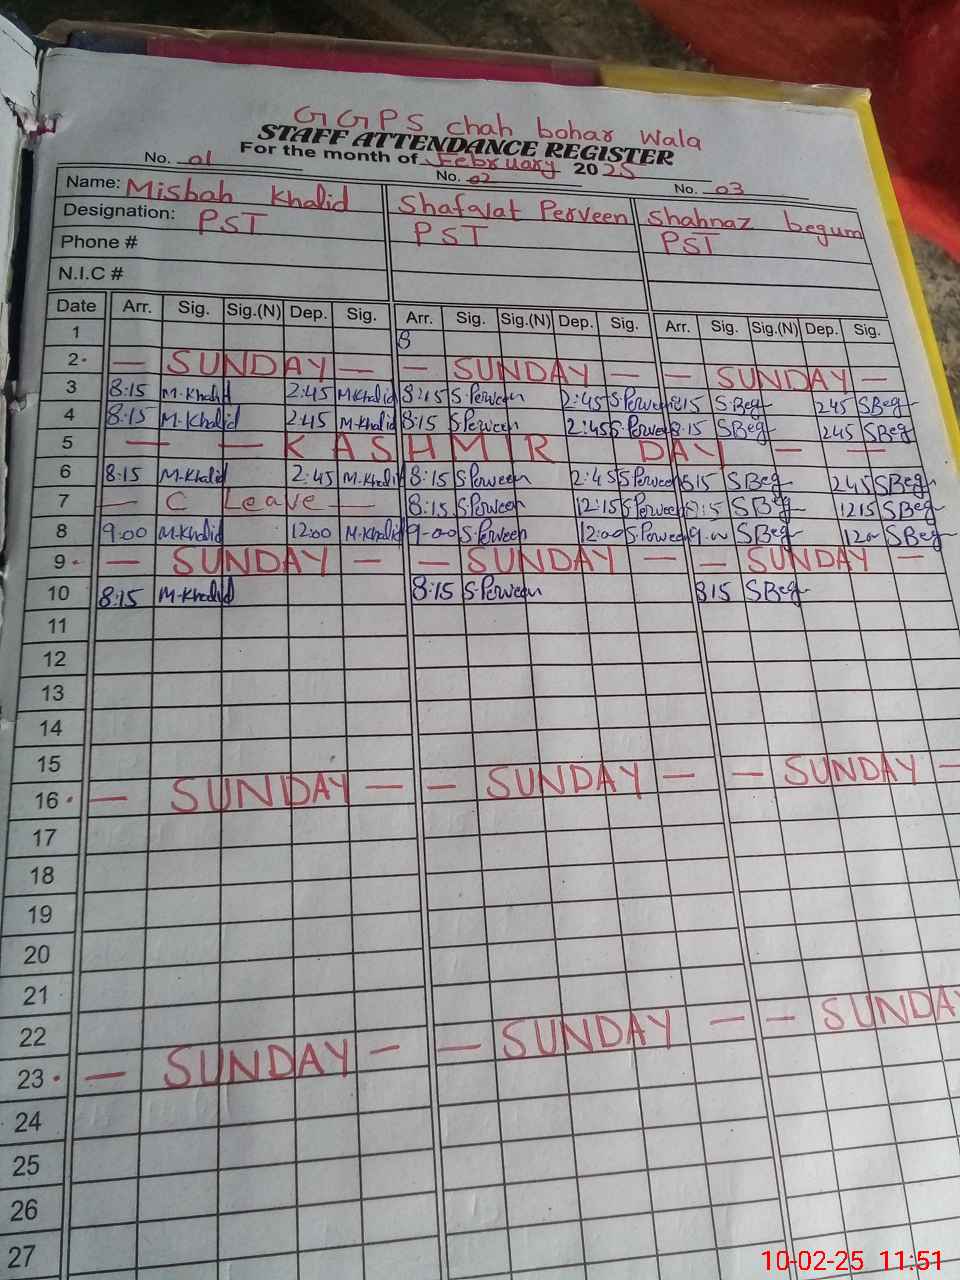 GGPS chah bohar wala
STAFF ATTENDANCE REGISTER
For the month of February 2025
No. 01 No. 02 No. 03
Name: Misbah Khalid Shafqat Perveen Shahnaz begum
Designation: PST PST PST
Phone #
N.I.C #
Date Arr. Sig. Sig.(N) Dep. Sig. Arr. Sig. Sig.(N) Dep. Sig. Arr. Sig. Sig.(N) Dep. Sig.
1 8
2 - SUNDAY - - SUNDAY - - SUNDAY -
3 8:15 M.Khalid 2:45 M.Khalid 8:15 S.Perveen 2:45 S.Perveen 8:15 S.Beg 245 SBeg
4 8:15 M.Khalid 2:45 M.Khalid 8:15 S.Perveen 2:45 S.Perveen 8:15 SBeg 245 SBeg
5 - - KASHMIR DAY - -
6 8:15 M.Khalid 2:45 M.Khalid 8:15 S.Perveen 2:45 S.Perveen 8:15 SBeg 245 SBeg
7 - C Leave - 8:15 S.Perveen 12:15 S.Perveen 8:15 SBeg 1215 SBeg
8 9:00 M.Khalid 12:00 M.Khalid 9-00 S.Perveen 12:00 S.Perveen 9.00 SBeg 1200 SBeg
9 - SUNDAY - - SUNDAY - - SUNDAY -
10 8:15 M.Khalid 8:15 S.Perveen 815 SBeg
11
12
13
14
15
16 - SUNDAY - - SUNDAY - - SUNDAY -
17
18
19
20
21
22
23 - SUNDAY - - SUNDAY - - SUNDAY
24
25
26
27
10-02-25 11:51